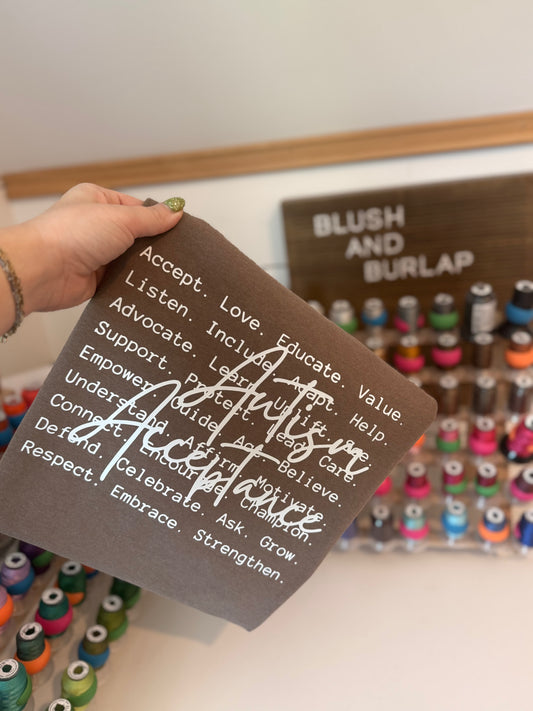 BLUSH
AND
BURLAP
Accept. Love. Educate. Value.
Listen. Include. Adapt. Help.
Advocate. Learn. Uplift.
Support. Protect. Lead. Care.
Empower. Guide. Believe.
Understand. Affirm. Motivate.
Connect. Encourage. Champion.
Defend. Celebrate. Ask. Grow.
Respect. Embrace. Strengthen.
Autism
Acceptance